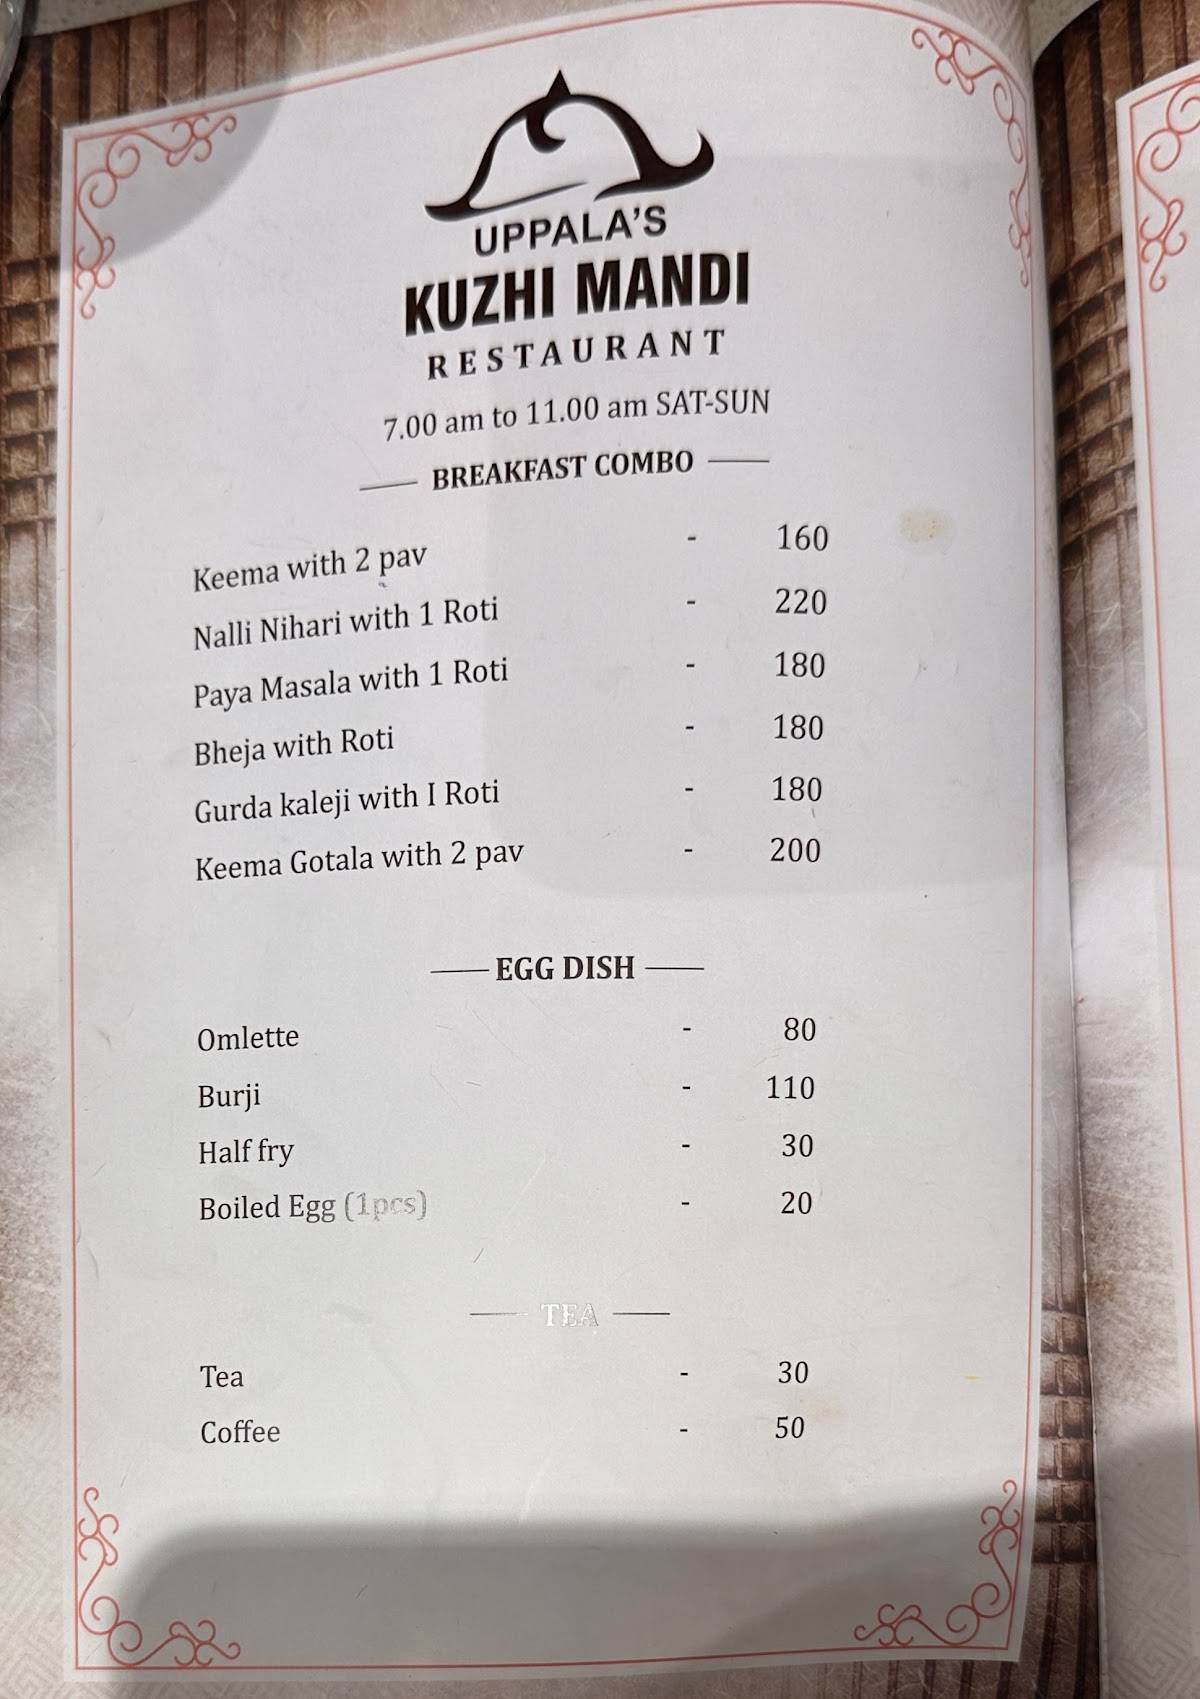 UPPALA'S
KUZHI MANDI
RESTAURANT
7.00 am to 11.00 am SAT-SUN
BREAKFAST COMBO
Keema with 2 pav - 160
Nalli Nihari with 1 Roti - 220
Paya Masala with 1 Roti - 180
Bheja with Roti - 180
Gurda kaleji with I Roti - 180
Keema Gotala with 2 pav - 200
EGG DISH
Omlette - 80
Burji - 110
Half fry - 30
Boiled Egg (1pcs) - 20
TEA
Tea - 30
Coffee - 50